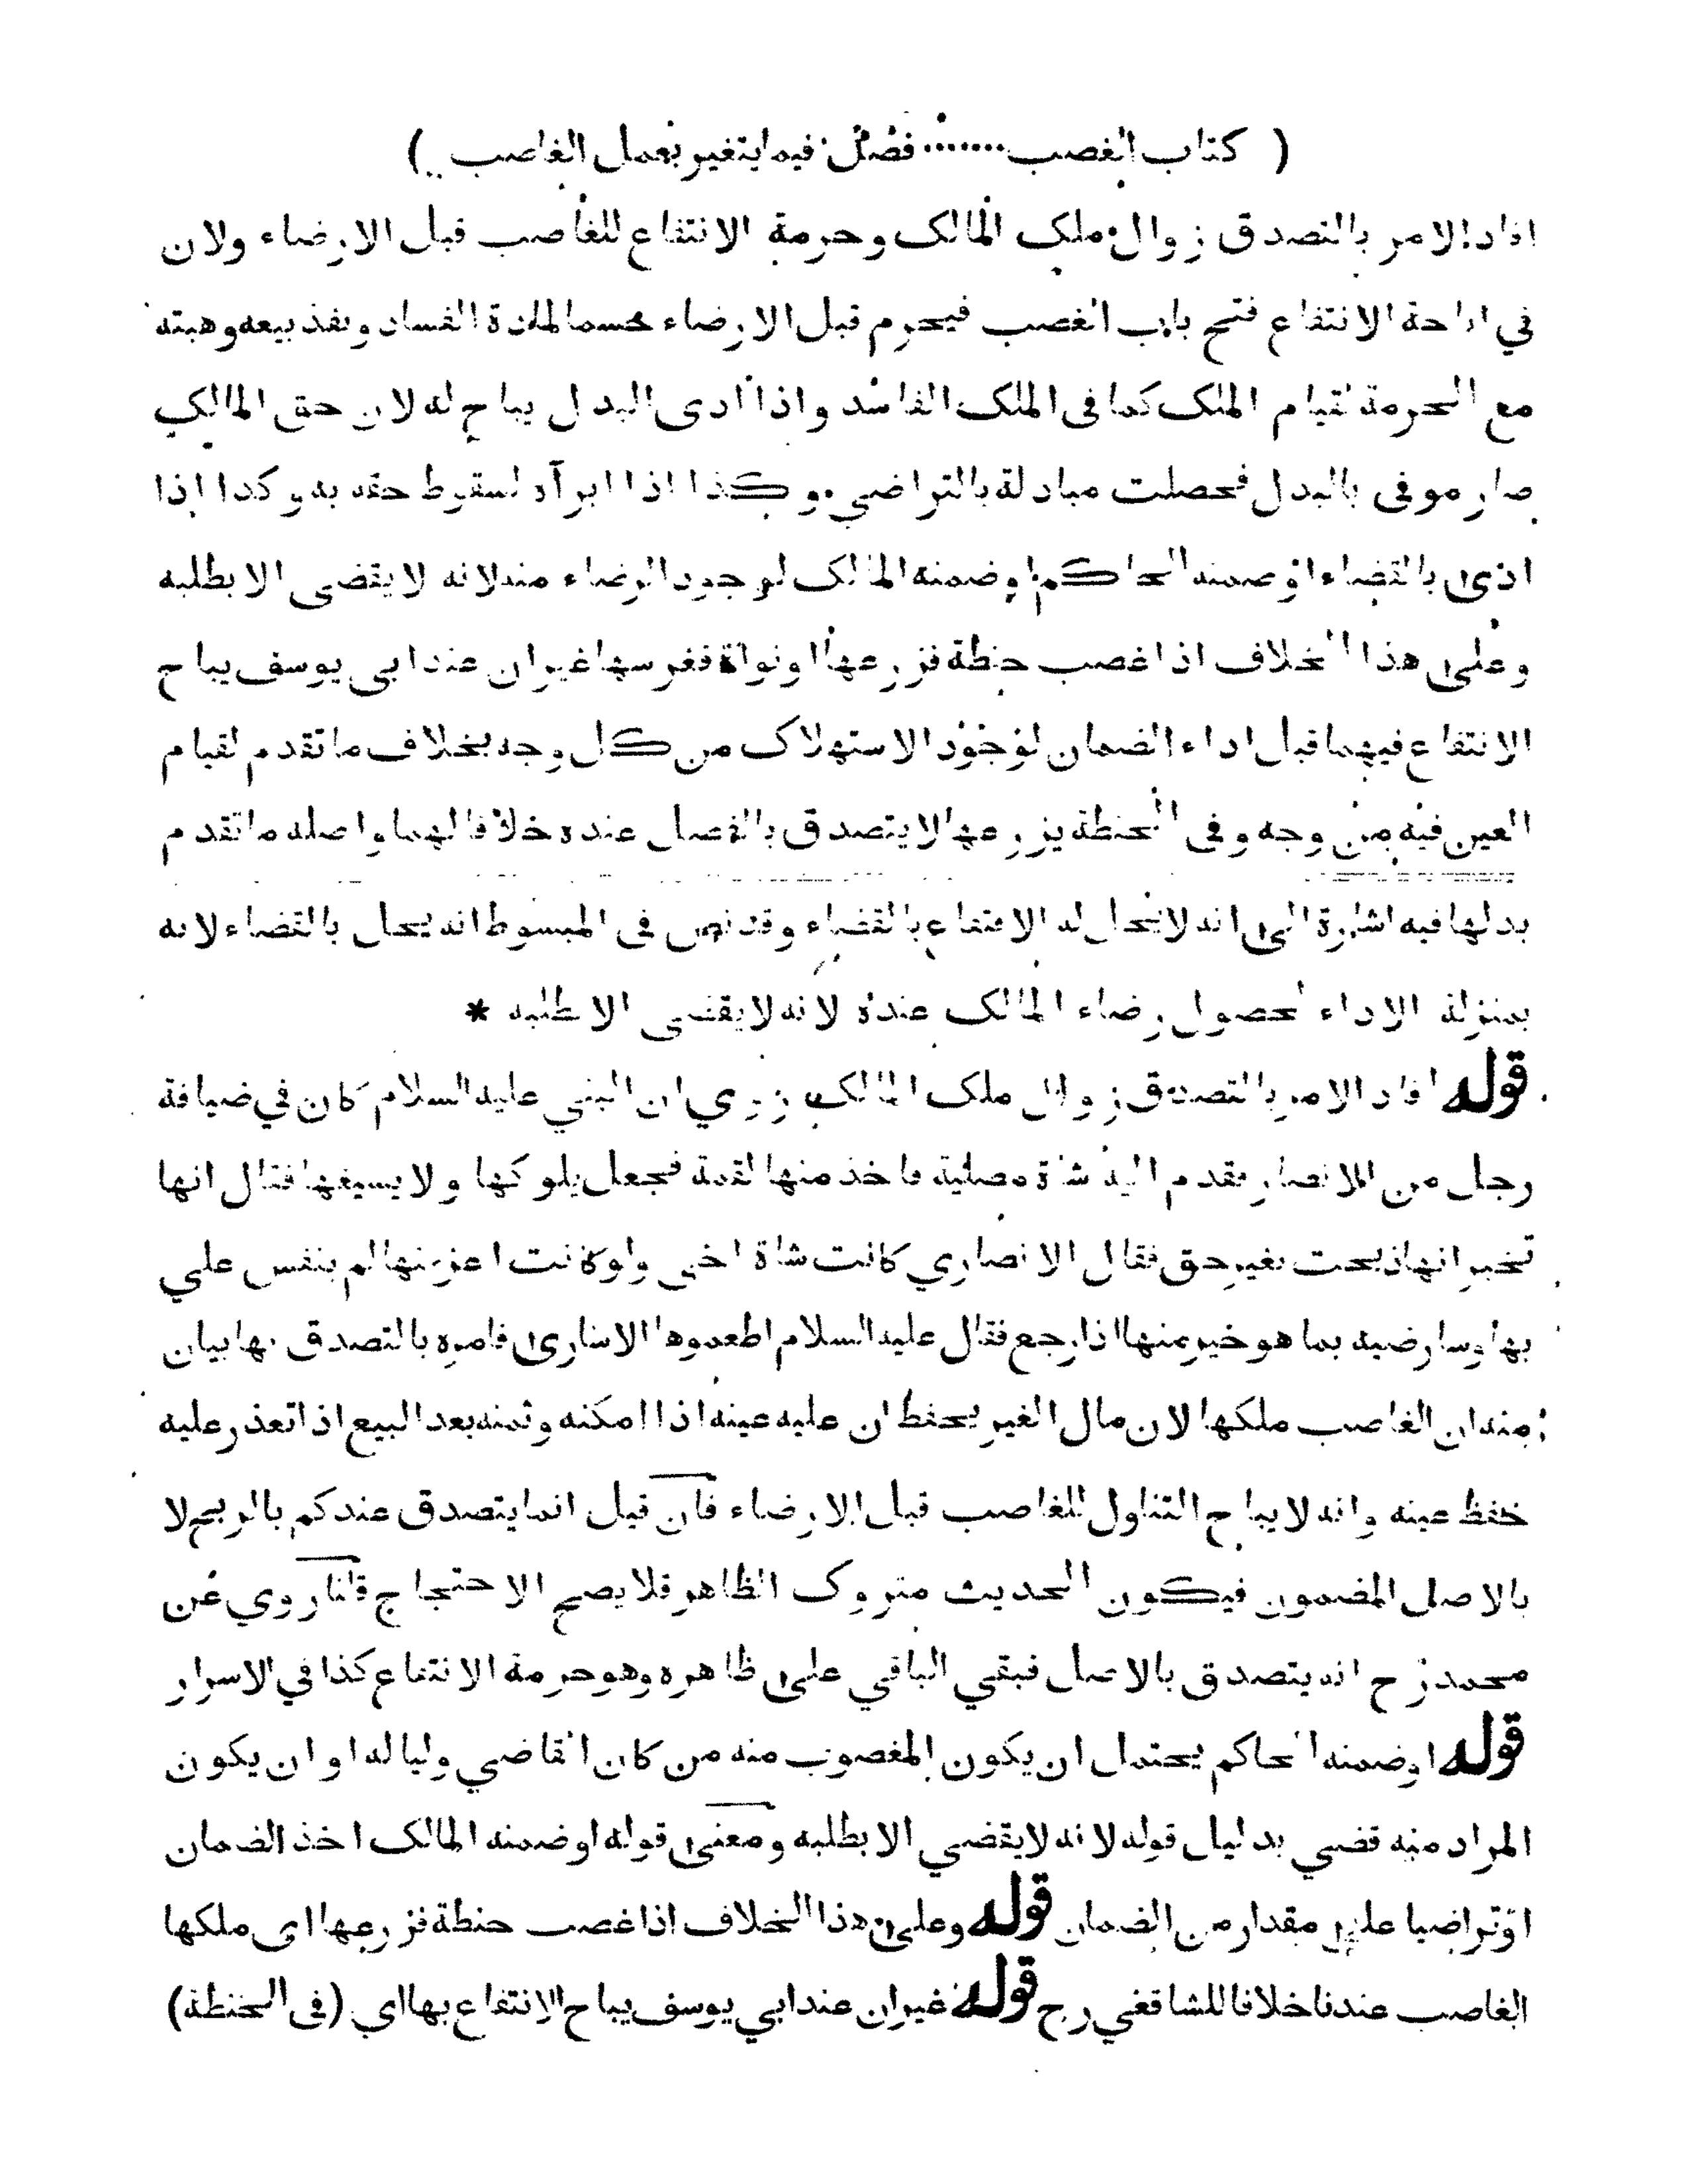 ( كتاب الغصب ....... فصل فيما يتغير بعمل الغاصب )
افاد الامر بالتصدق زوال ملك المالك وحرمة الانتفاع للغاصب قبل الارضاء ولان
في اباحة الانتفاع فتح باب الغصب فيحرم قبل الارضاء حسما لمادة الفساد ونفذ بيعه وهبته
مع الحرمة لقيام الملك كما في الملك الفاسد واذا ادى البدل يباح له لان حق المالك
صار موفى بالبدل فحصلت مبادلة بالتراضي وكذا اذا ابرأه لسقوط حقه به وكذا اذا
ادى بالقضاء او ضمنه الحاكم او ضمنه المالك لوجود الرضاء منه لانه لا يقضى الا بطلبه
وعلى هذا الخلاف اذا غصب حنطة فزرعها او نواة فغرسها غير ان عند ابي يوسف يباح
الانتفاع فيهما قبل اداء الضمان لوجود الاستهلاك من كل وجه بخلاف ما تقدم لقيام
العين فيه من وجه وفى الحنطة يزرعها لا يتصدق بالفضل عنده خلافا لهما واصله ما تقدم
بدلها فيه اشارة الى انه لا يحل له الانتفاع بالقضاء وقد نص فى المبسوط انه يحل بالقضاء لانه
بمنزلة الاداء لحصول رضاء المالك عنده لانه لا يقضى الا بطلبه *
قوله افاد الامر بالتصدق زوال ملك المالك روي ان النبي عليه السلام كان في ضيافة
رجل من الانصار فقدم اليه شاة مصلية فاخذ منها لقمة فجعل يلوكها ولا يسيغها فقال انها
تخبر انها ذبحت بغير حق فقال الانصاري كانت شاة اخي ولو كانت اعز منها لم ينفس علي
بها وسارضيه بما هو خير منها اذا رجع فقال عليه السلام اطعموها الاسارى فامره بالتصدق بها بيان
منه ان الغاصب ملكها لان مال الغير يحفظ ان عليه عينه اذا امكنه وثمنه بعد البيع اذا تعذر عليه
حفظ عينه وانه لا يباح التناول للغاصب قبل الارضاء فان قيل انما يتصدق عندكم بالربح لا
بالاصل المضمون فيكون الحديث متروك الظاهر فلا يصح الاحتجاج قلنا روي عن
محمد رح انه يتصدق بالاصل فبقي الباقي على ظاهره وهو حرمة الانتفاع كذا في الاسرار
قوله او ضمنه الحاكم يحتمل ان يكون المغصوب منه من كان القاضي وليا له او ان يكون
المراد منه قضى بدليل قوله لانه لا يقضي الا بطلبه ومعنى قوله او ضمنه المالك اخذ الضمان
او تراضيا على مقدار من الضمان قوله وعلى هذا الخلاف اذا غصب حنطة فزرعها اى ملكها
الغاصب عندنا خلافا للشافعي رح قوله غير ان عند ابي يوسف يباح الانتفاع بها اي (فى الحنطة)